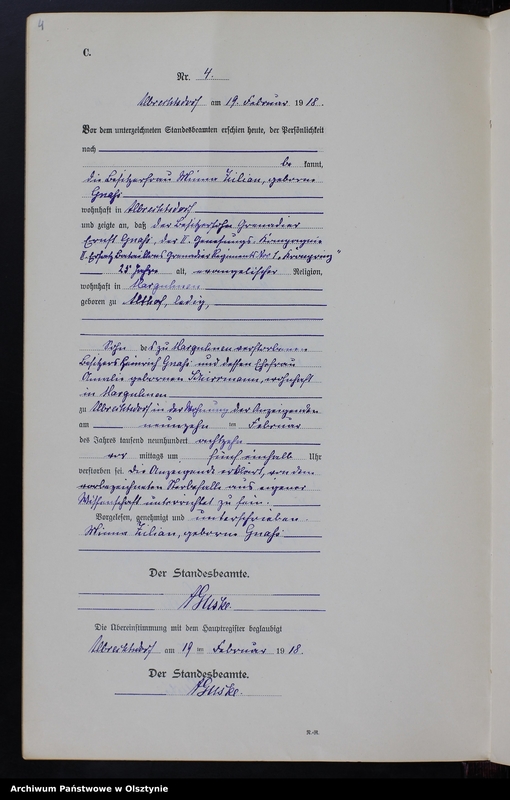 4
C.
Nr. 4.
Albrechtsdorf am 19. Februar 1918.
Vor dem unterzeichneten Standesbeamten erschien heute, der Persönlichkeit
nach
be kannt,
die Besitzerfrau Minna Zilian, geborne
Gnass
wohnhaft in Albrechtsdorf
und zeigte an, daß der Besitzersohn Grenadier
Ernst Gnass, der II. Genesungs-Kompagnie
II. Ersatz Bataillons Grenadier Regiments Nr 1 „Kronprinz"
25 Jahre alt, evangelischer Religion,
wohnhaft in Margulenen
geboren zu Althof, ledig,
Sohn des zu Margulenen verstorbenen
Besitzers Heinrich Gnass und dessen Ehefrau
Amalie gebornen Schirrmann, wohnhaft
in Margulenen
zu Albrechtsdorf in der Wohnung der Anzeigenden
am neunzehn ten Februar
des Jahres tausend neunhundert achtzehn
vor mittags um fünf einhalb Uhr
verstorben sei. Die Anzeigende erklärt, von dem
vorbezeichneten Sterbefalle aus eigener
Wissenschaft unterrichtet zu sein.
Vorgelesen, genehmigt und unterschrieben
Minna Zilian, geborne Gnass
Der Standesbeamte.
Guske.
Die Übereinstimmung mit dem Hauptregister beglaubigt
Albrechtsdorf am 19 ten Februar 1918.
Der Standesbeamte.
Guske.
Archiwum Państwowe w Olsztynie